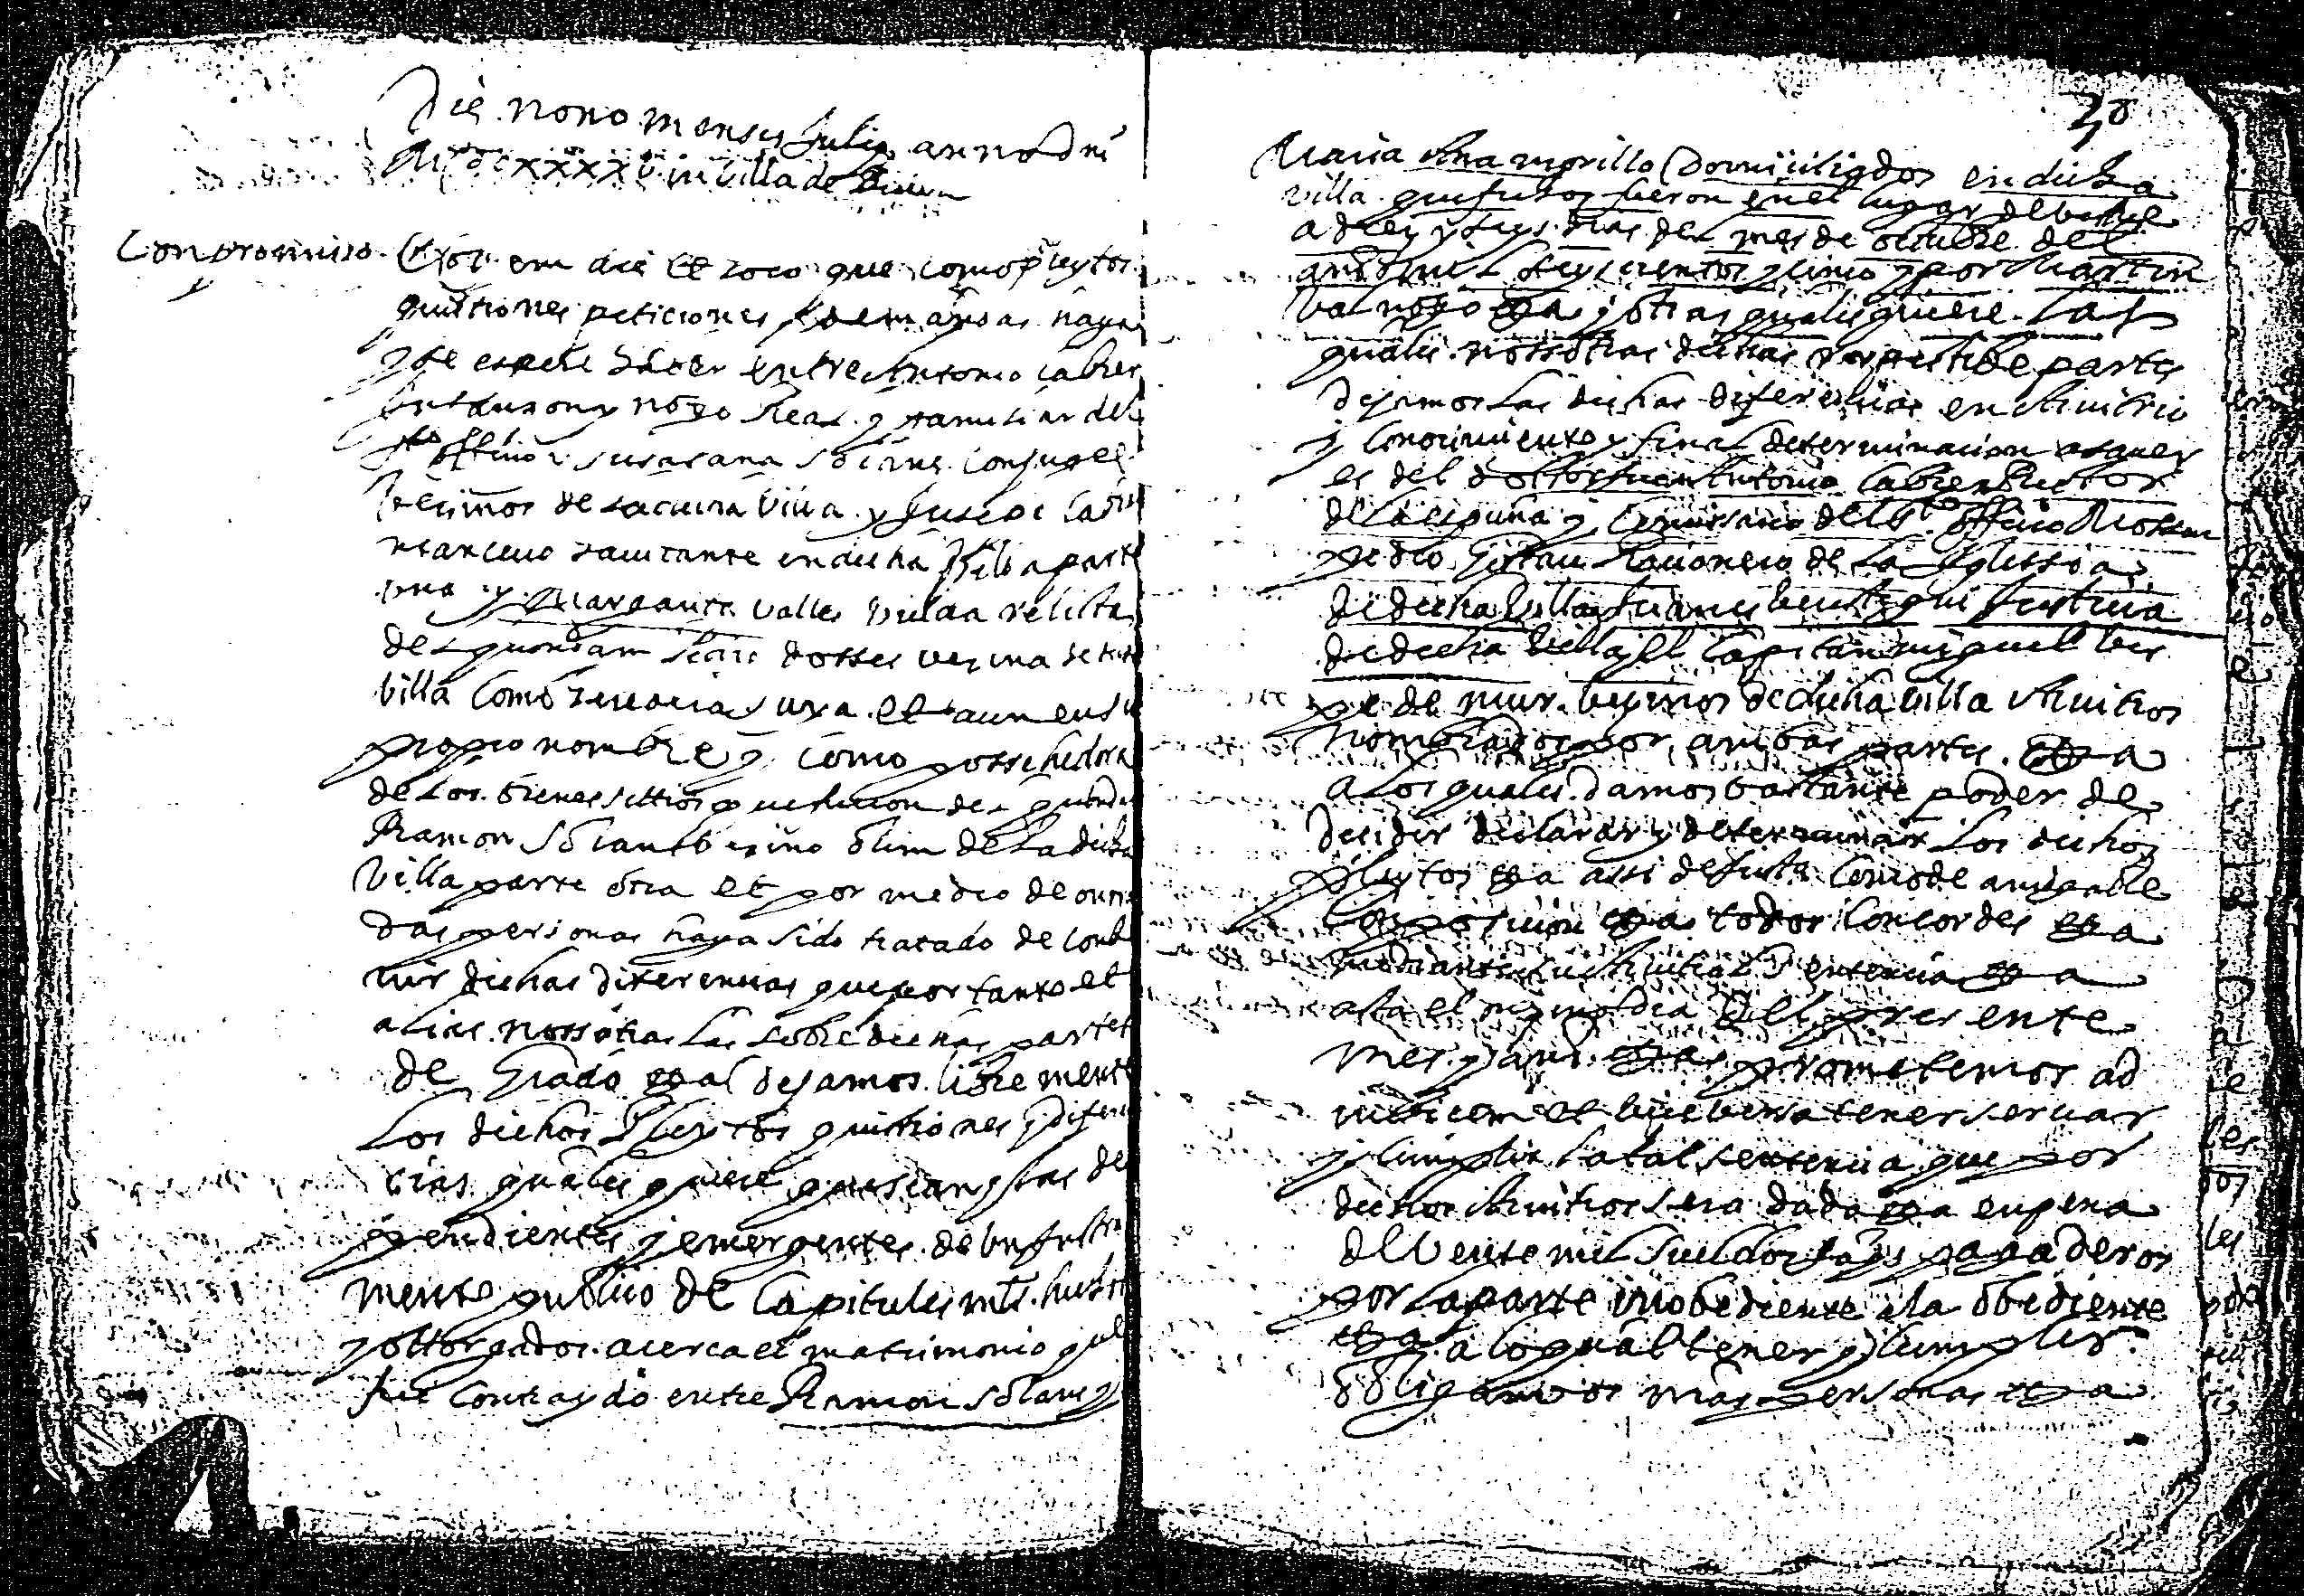 Die nono mensis Julij anno Dni
MDCXXXXV in Villa de
Compromiso
Eysdem die et loco que como pleytos
questiones peticiones y demandas haya
y se espere haver entre Antonio Cabrer
y familiar del
sto officio y Susagana Solans conjuges
vecinos de la dicha Villa y Jusepe Cabrer
mancevo havitante en dicha Villa parte
una y Margarita Valles viuda relicta
del quondam Juan dosset vezina de dicha
Villa como suya et aun en su
propio nombre y como possehedora
de los bienes sittios que fueron del quondam
Ramon Solans vezino olim de la dicha
Villa parte otra et por medio de onrra
das personas haya sido tratado de conve
nir dichas diferencias que por tanto et
alias nossotras las sobre dichas partes
de Grado etca dejamos libremente
los dichos Pleytos questiones y diferen
cias quales quiere que sean y las de
pendientes y emergentes de un Instru
mento publico de Capitules mtr hechos
y ottorgados acerca el matrimonio que
fue contraydo entre Ramon Solans y
38
Maria Ana morillo Domiciliados en dicha
Villa que fueron en el lugar de
a diez y seys dias del mes de octubre del
año mil y seyscientos y cinco y por Martin
Val notto etca y otras quales quiere las
quales nossotras dichas respective partes
dejamos las dichas diferencias en Arvitrio
y Conocimiento y final determinacion a saver
es del doctor Juan Antonio Cabrer Rector
de la espuña y Comissario del sto officio Mossen
pedro Gistau Racionero de la Iglessia
de dicha Villa Juanes Justicia
de dicha Villa y el Capitan miguel
de mur vezinos de dicha villa Arvitros
nombrados por ambas partes etca
a los quales damos bastante poder de
decidir declarar y determinar los dichos
pleytos etca assi de Justa como de amigable
composicion etca todos concordes etca
mediante su Arvitral Sentencia etca
asta el mismo dia del presente
mes y año etca prometemos ad
invicem et vice versa tener servar
y cumplir la tal sentencia que por
dichos Arvitros sera dada etca en pena
de veinte mil sueldos Jaqs pagaderos
por la parte inobediente a la obediente
etca a lo qual tener y cumplir
obligamos nras personas etca